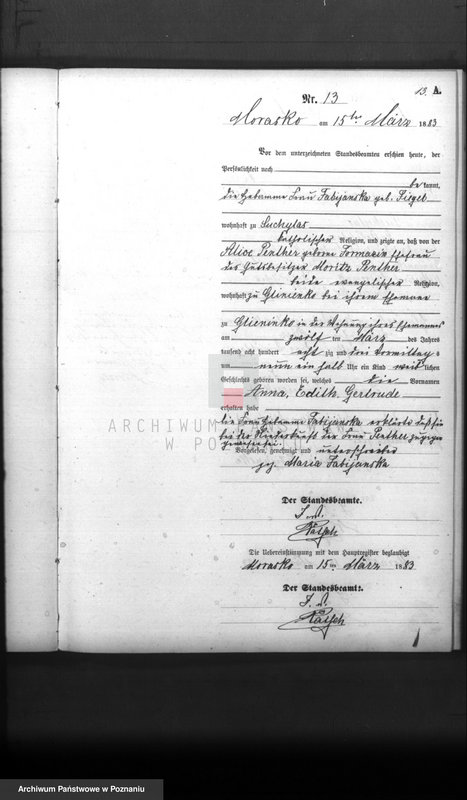 13. A.
Nr. 13
Morasko am 15ten März 1883
Vor dem unterzeichneten Standesbeamten erschien heute, der
Persönlichkeit nach
be kannt,
die Hebamme Frau Fabijanska geb.
wohnhaft zu Suchylas
katholischer Religion, und zeigte an, daß von der
Alice Penther geborene Ehefrau
des Gutsbesitzer Moritz Penther
beide evangelischer Religion,
wohnhaft zu Glinienko bei ihrem Ehemann
zu Glieninko in der Wohnung ihres Ehemannes
am zwölf ten März des Jahres
tausend acht hundert acht zig und drei Vormittag s
um neun ein halb Uhr ein Kind weib lichen
Geschlechts geboren worden sei, welches die Vornamen
Anna, Edith, Gertrude
erhalten habe
die Frau Hebamme Fabijanska erklärte daß sie
bei der Niederkunft der Frau Penther zugegen
gewesen sei.
Vorgelesen, genehmigt und unterschrieben
gez. Maria Fabijanska
Der Standesbeamte.
I. V.
Die Uebereinstimmung mit dem Hauptregister beglaubigt
Morasko am 15ten März 1883
Der Standesbeamte.
I. V.
ARCHIWUM PAŃSTWOWE
W POZNANIU
Archiwum Państwowe w Poznaniu